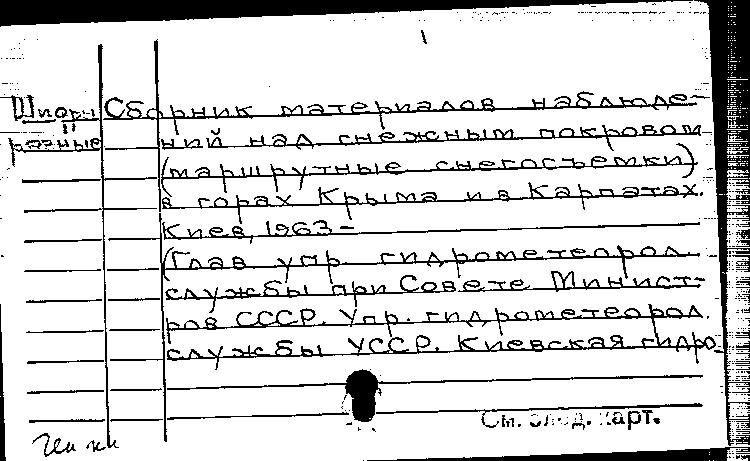 1
Шифры Сборник материалов наблюде-
разные ний над снежным покровом
(маршрутные снегосъемки)
в горах Крыма и в Карпатах.
Киев, 1963-
(Глав упр гидрометеорол.
службы при Совете Минист-
ров СССР. Упр. гидрометеорол.
службы УССР. Киевская гидро-
См. след. карт.